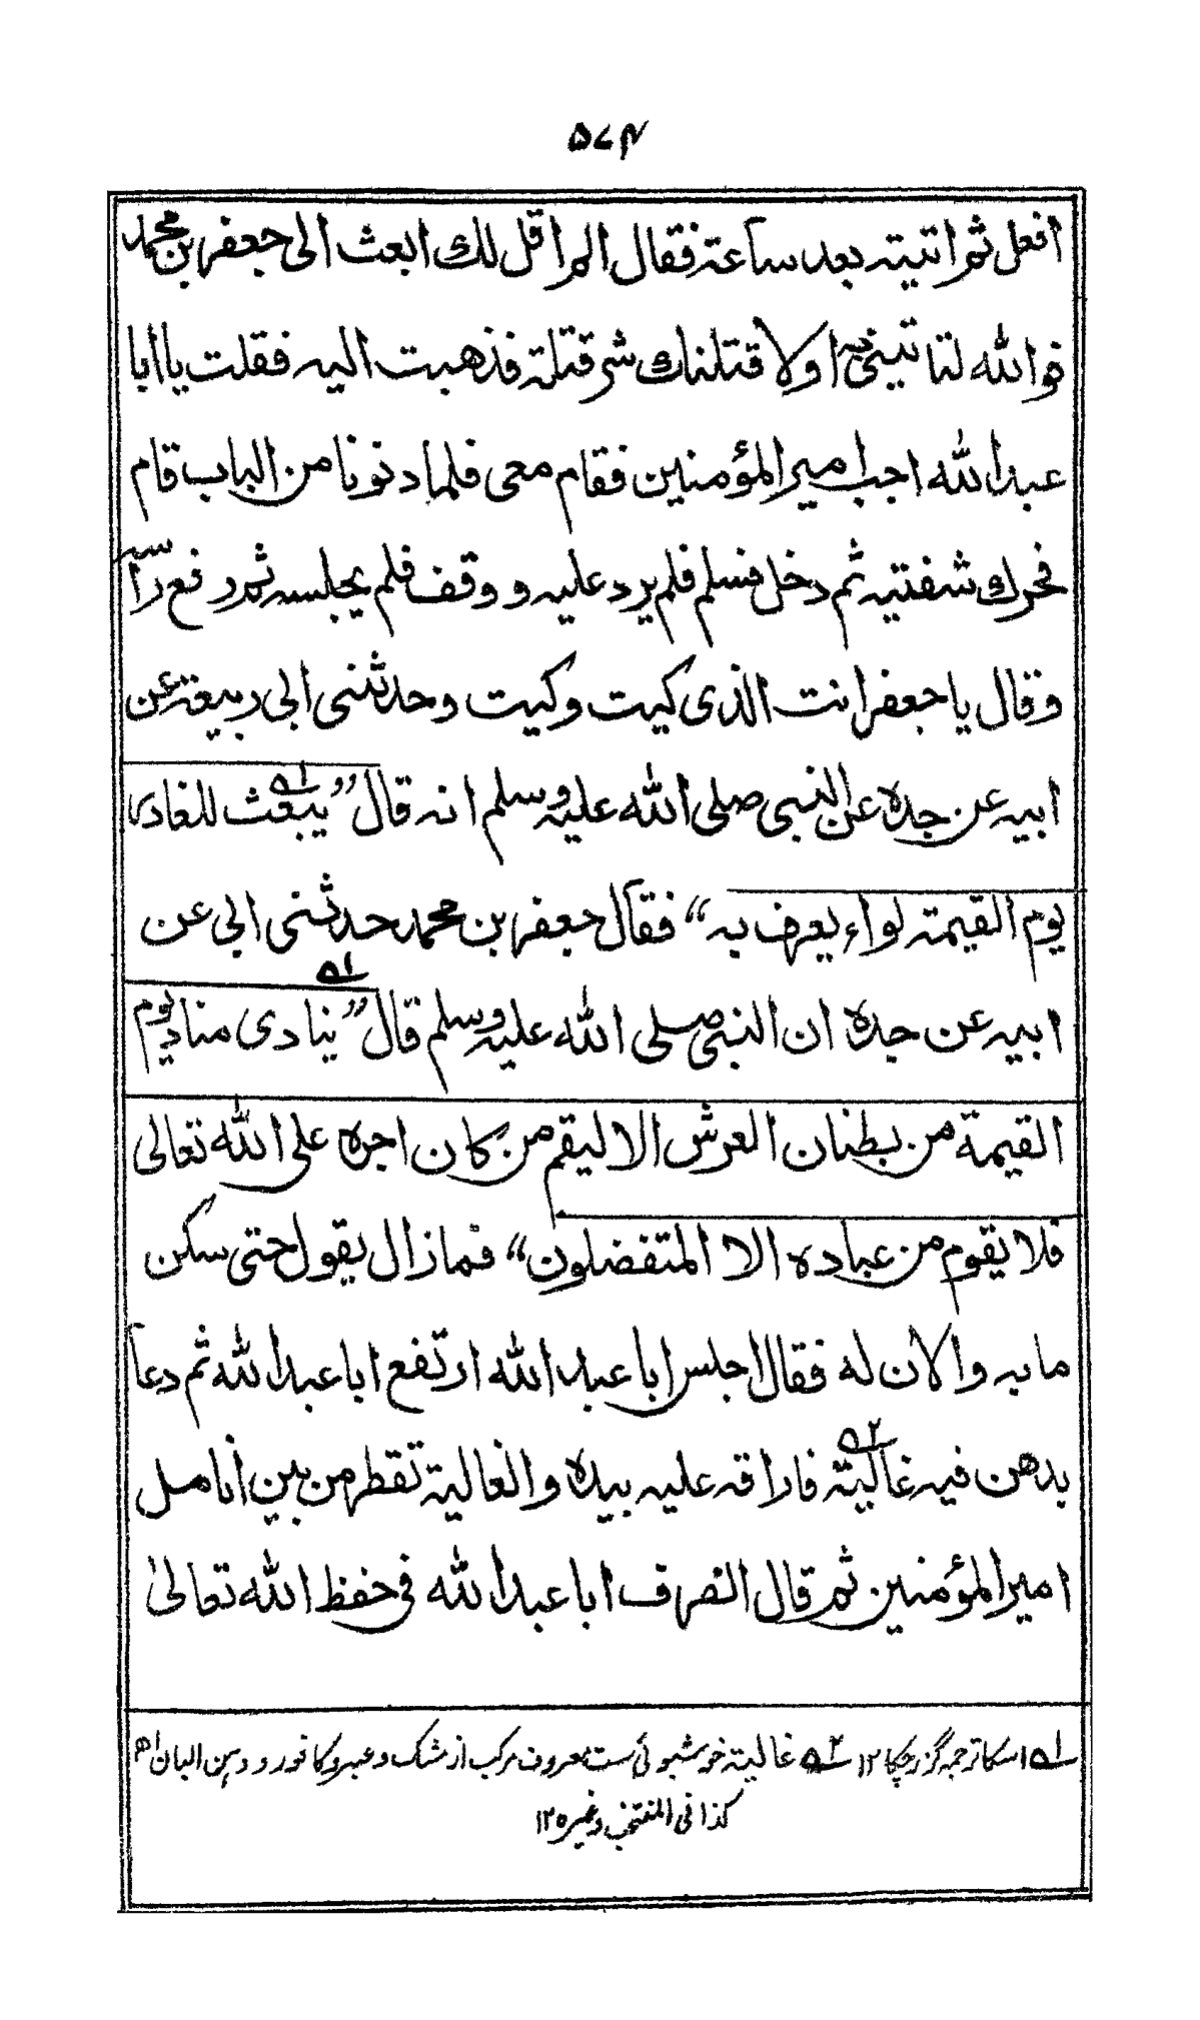 ۵۷۴
افعل ثم اتيته بعد ساعة فقال الم اقل لك ابعث الى جعفر بن محمد
فوالله لتاتيني به او لا قتلنك شر قتلة فذهبت اليه فقلت يا ابا
عبد الله اجب امير المؤمنين فقام معى فلما دنونا من الباب قام
فحرك شفتيه ثم دخل فسلم فلم يرد عليه ووقف فلم يجلسه ثم رفع رأسه
وقال يا جعفر انت الذى كيت وكيت وحدثنى ابى ربيعة عن
ابيه عن جده عن النبي صلى الله عليه وسلم انه قال "يبعث للغادر
يوم القيمة لواء يعرف به" فقال جعفر بن محمد حدثنى ابى عن
ابيه عن جده ان النبي صلى الله عليه وسلم قال "ينادى مناد يوم
القيمة من بطنان العرش الا ليقم من كان اجره على الله تعالى
فلا يقوم من عباده الا المتفضلون" فما زال يقول حتى سكن
ما به والان له فقال اجلس ابا عبد الله ارتفع ابا عبد الله ثم دعا
بدهن فيه غالية فاراقه عليه بيده والغالية تقطر من بين انامل
امير المؤمنين ثم قال انصرف ابا عبد الله فى حفظ الله تعالىٰ
؂۱ اسکا ترجمہ گزر چکا ۱۲ ؂۲ غالیتہ خوشبوئی ست معروف مرکب از مشک و عنبر و کافور و دہن البان اھ
کذا فی المنتخب وغیرہ ۱۲